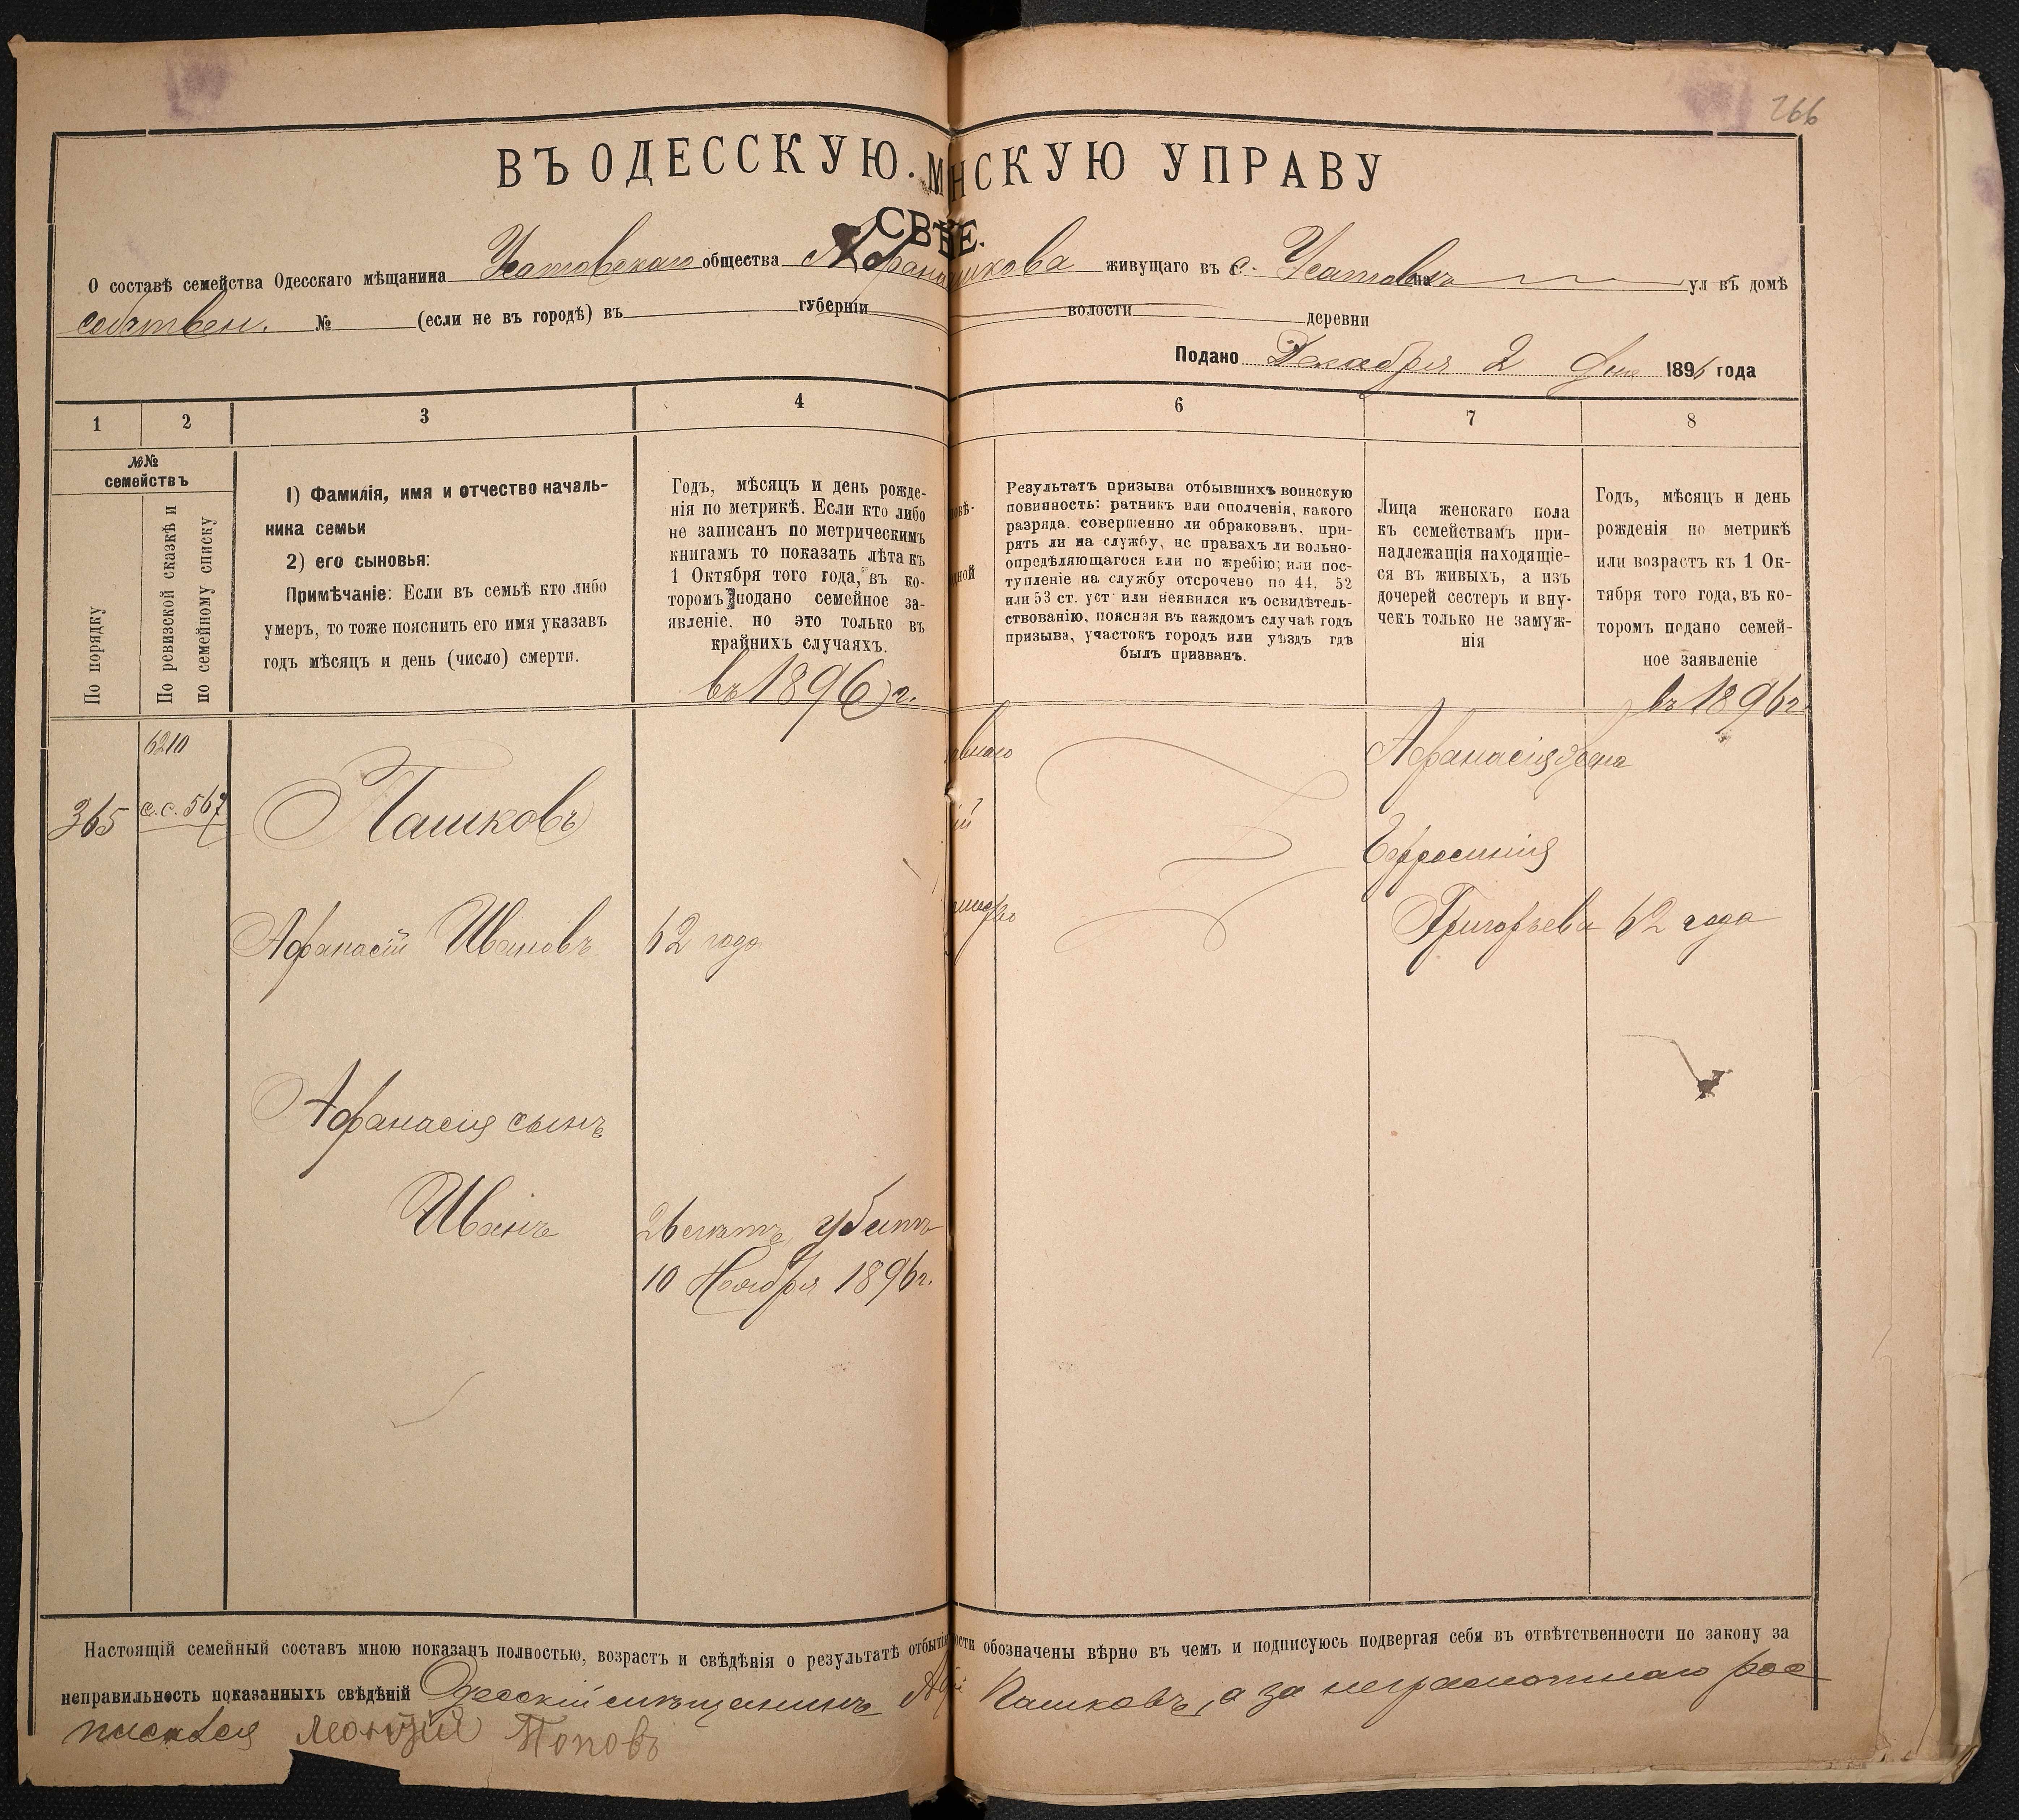 266
ВЪ ОДЕССКУЮ. М НСКУЮ УПРАВУ
СВѢ Е.
О составѣ семейства Одесскаго мѣщанина Усатовскаго общества Афана шкова живущаго въ с. Усатовахъ на ул въ домѣ
собствен. № (если не въ городѣ) въ губерніи волости деревни
Подано Декабря 2 дня 1896 года
1 2 3 4 6 7 8
№№ семействъ
По порядку
По ревизской сказкѣ и
по семейному списку
1) Фамилія, имя и отчество началь-
ника семьи
2) его сыновья:
Примѣчаніе: Если въ семьѣ кто либо
умеръ, то тоже пояснить его имя указавъ
годъ мѣсяцъ и день (число) смерти.
Годъ, мѣсяцъ и день рожде-
нія по метрикѣ. Если кто либо
не записанъ по метрическимъ
книгамъ то показать лѣта къ
1 Октября того года, въ ко-
торомъ подано семейное за-
явленіе, но это только въ
крайнихъ случаяхъ.
въ 1896 г.
овѣ-
дной
Результатъ призыва отбывшихъ воинскую
повинность: ратникъ или ополченія, какого
разряда. совершенно ли обракованъ, при-
рять ли на службу, нс правахъ ли вольно-
опредѣляющагося или по жребію; или пос-
тупленіе на службу отсрочено по 44, 52
или 53 ст. уст или неявился къ освидѣтель-
ствованію, поясняя въ каждомъ случаѣ годъ
призыва, участокъ городъ или уѣздъ гдѣ
былъ призванъ.
Лица женскаго пола
къ семействамъ при-
надлежащія находящіе-
ся въ живыхъ, а изъ
дочерей сестеръ и вну-
чекъ только не замуж-
нія
Годъ, мѣсяцъ и день
рожденія по метрикѣ
или возрастъ къ 1 Ок-
тября того года, въ ко-
торомъ подано семей-
ное заявленіе
въ 1896 г
6210
365 с.с. 567 Пашковъ
Афанасій Ивановъ 62 года
Афанасія сынъ
Иванъ 26 лѣтъ, убитъ
10 Ноября 1896 г.
Афанасія жена
Ефросинія
Григорьева 62 года
Настоящій семейный составъ мною показанъ полностью, возрастъ и свѣдѣнія о результатѣ отбытія ости обозначены вѣрно въ чемъ и подписуюсь подвергая себя въ отвѣтственности по закону за
неправильность показанныхъ свѣдѣній Одесскій мѣщанинъ Аф Пашковъ, а за неграмотнаго рос
писался Леонтій Поповъ